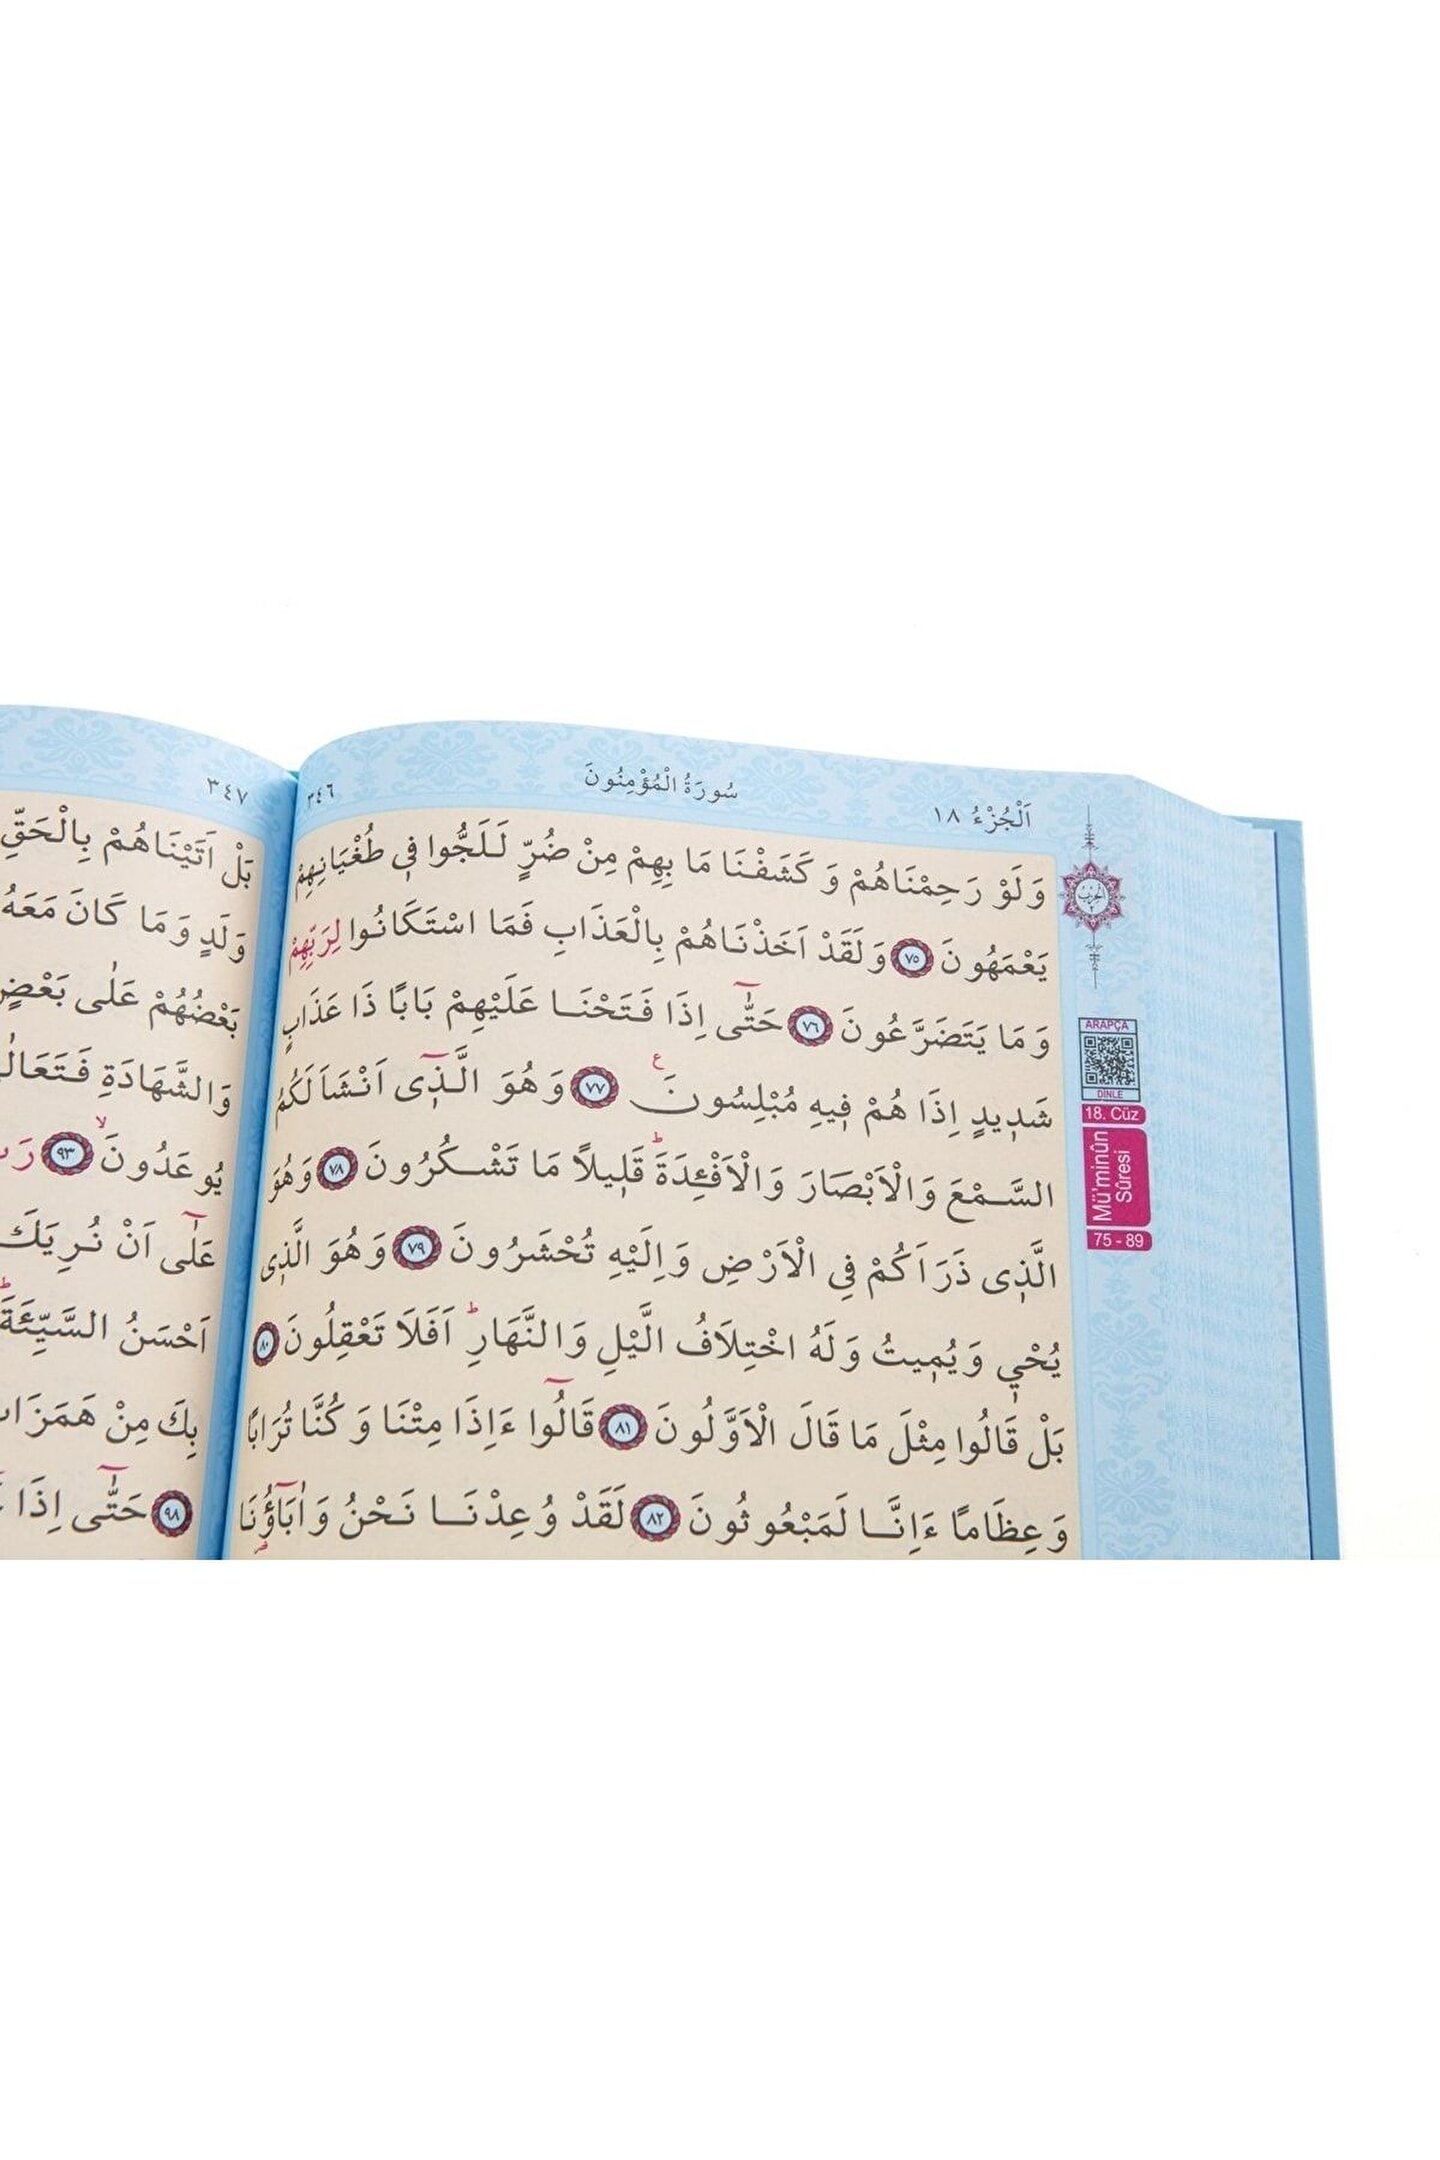 اَلْجُزْءُ ١٨
سُورَةُ الْمُؤْمِنُونَ
٣٤٦
وَلَوْ رَحِمْنَاهُمْ وَكَشَفْنَا مَا بِهِمْ مِنْ ضُرٍّ لَلَجُّوا فٖى طُغْيَانِهِمْ
يَعْمَهُونَ ٧٥ وَلَقَدْ اَخَذْنَاهُمْ بِالْعَذَابِ فَمَا اسْتَكَانُوا لِرَبِّهِمْ
وَمَا يَتَضَرَّعُونَ ٧٦ حَتّٰٓى اِذَا فَتَحْنَا عَلَيْهِمْ بَابًا ذَا عَذَابٍ
شَدٖيدٍ اِذَا هُمْ فٖيهِ مُبْلِسُونَ ع ٧٧ وَهُوَ الَّذٖٓى اَنْشَاَ لَكُمُ
السَّمْعَ وَالْاَبْصَارَ وَالْاَفْـِٔدَةَ ط قَلٖيلًا مَا تَشْكُرُونَ ٧٨ وَهُوَ
الَّذٖى ذَرَاَكُمْ فِى الْاَرْضِ وَاِلَيْهِ تُحْشَرُونَ ٧٩ وَهُوَ الَّذٖى
يُحْيٖ وَيُمٖيتُ وَلَهُ اخْتِلَافُ الَّيْلِ وَالنَّهَارِ ط اَفَلَا تَعْقِلُونَ ٨٠
بَلْ قَالُوا مِثْلَ مَا قَالَ الْاَوَّلُونَ ٨١ قَالُٓوا ءَاِذَا مِتْنَا وَكُنَّا تُرَابًا
وَعِظَامًا ءَاِنَّا لَمَبْعُوثُونَ ٨٢ لَقَدْ وُعِدْنَا نَحْنُ وَاٰبَٓاؤُ۬نَا
الحزب
٢
ARAPÇA
DİNLE
18. Cüz
Mü'minûn
Sûresi
75 - 89
٣٤٧
بَلْ اَتَيْنَاهُمْ بِالْحَقِّ
وَلَدٍ وَمَا كَانَ مَعَهُ
بَعْضُهُمْ عَلٰى بَعْضٍ
وَالشَّهَادَةِ فَتَعَالٰى
يُوعَدُونَ لا ٩٣
عَلٰٓى اَنْ نُرِيَكَ
اَحْسَنُ السَّيِّئَةَ ط
بِكَ مِنْ هَمَزَاتِ
٩٨ حَتّٰٓى اِذَا